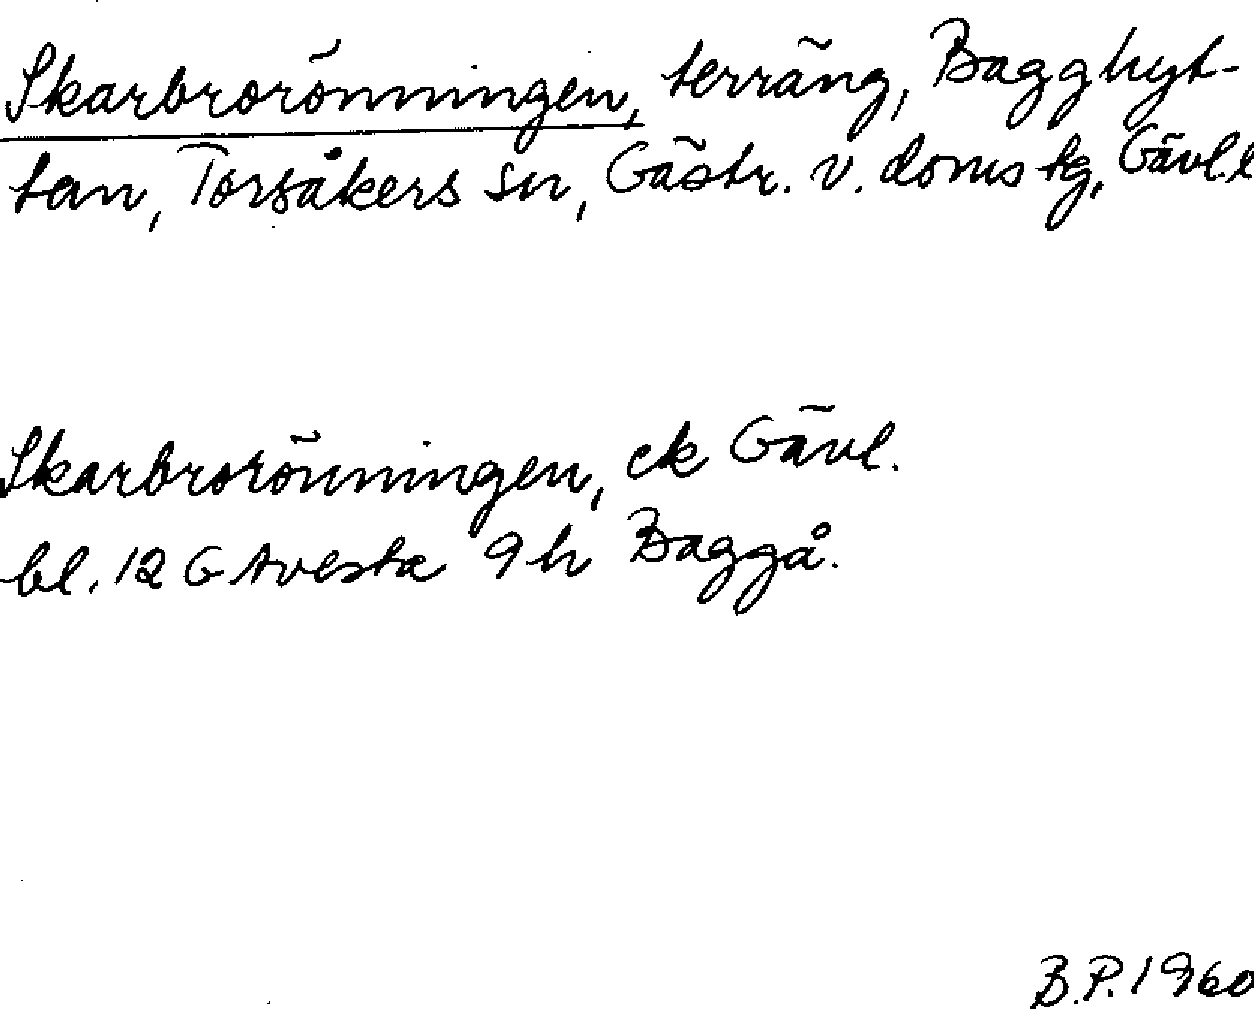 Skarbrorönningen, terräng, Bagghyt-
tan, Torsåkers sn, Gästr. v. doms tg, Gävl.l
Skarbrorönningen, ek Gävl.
bl. 12 G Avesta 9 h Baggå.
B.P. 1960